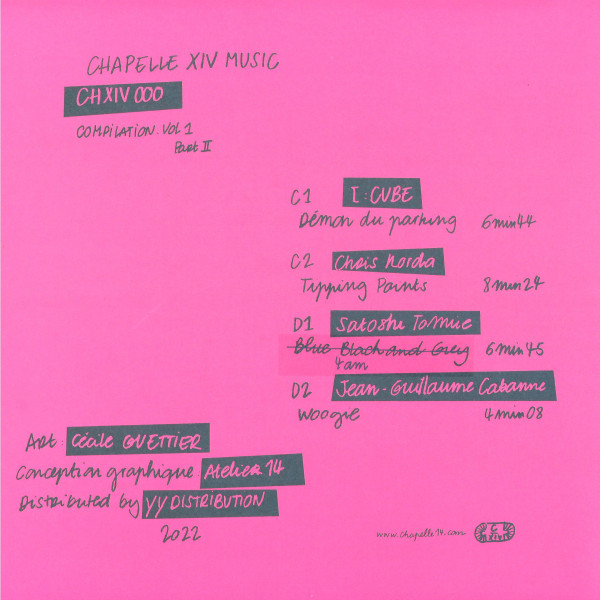 CHAPELLE XIV MUSIC
CHXIV 000
COMPILATION. VOL 1
Part II
C1 I:CUBE
Démon du parking 6min44
C2 Chris Korda
Tipping Points 8min24
D1 Satoshi Tomiie
Blue Black and Grey 6min45
4am
D2 Jean-Guillaume Cabanne
Woogie 4min08
Art: Cécile GUETTIER
Conception graphique Atelier 14
Distributed by YY DISTRIBUTION
2022
www.chapelle14.com C XIV